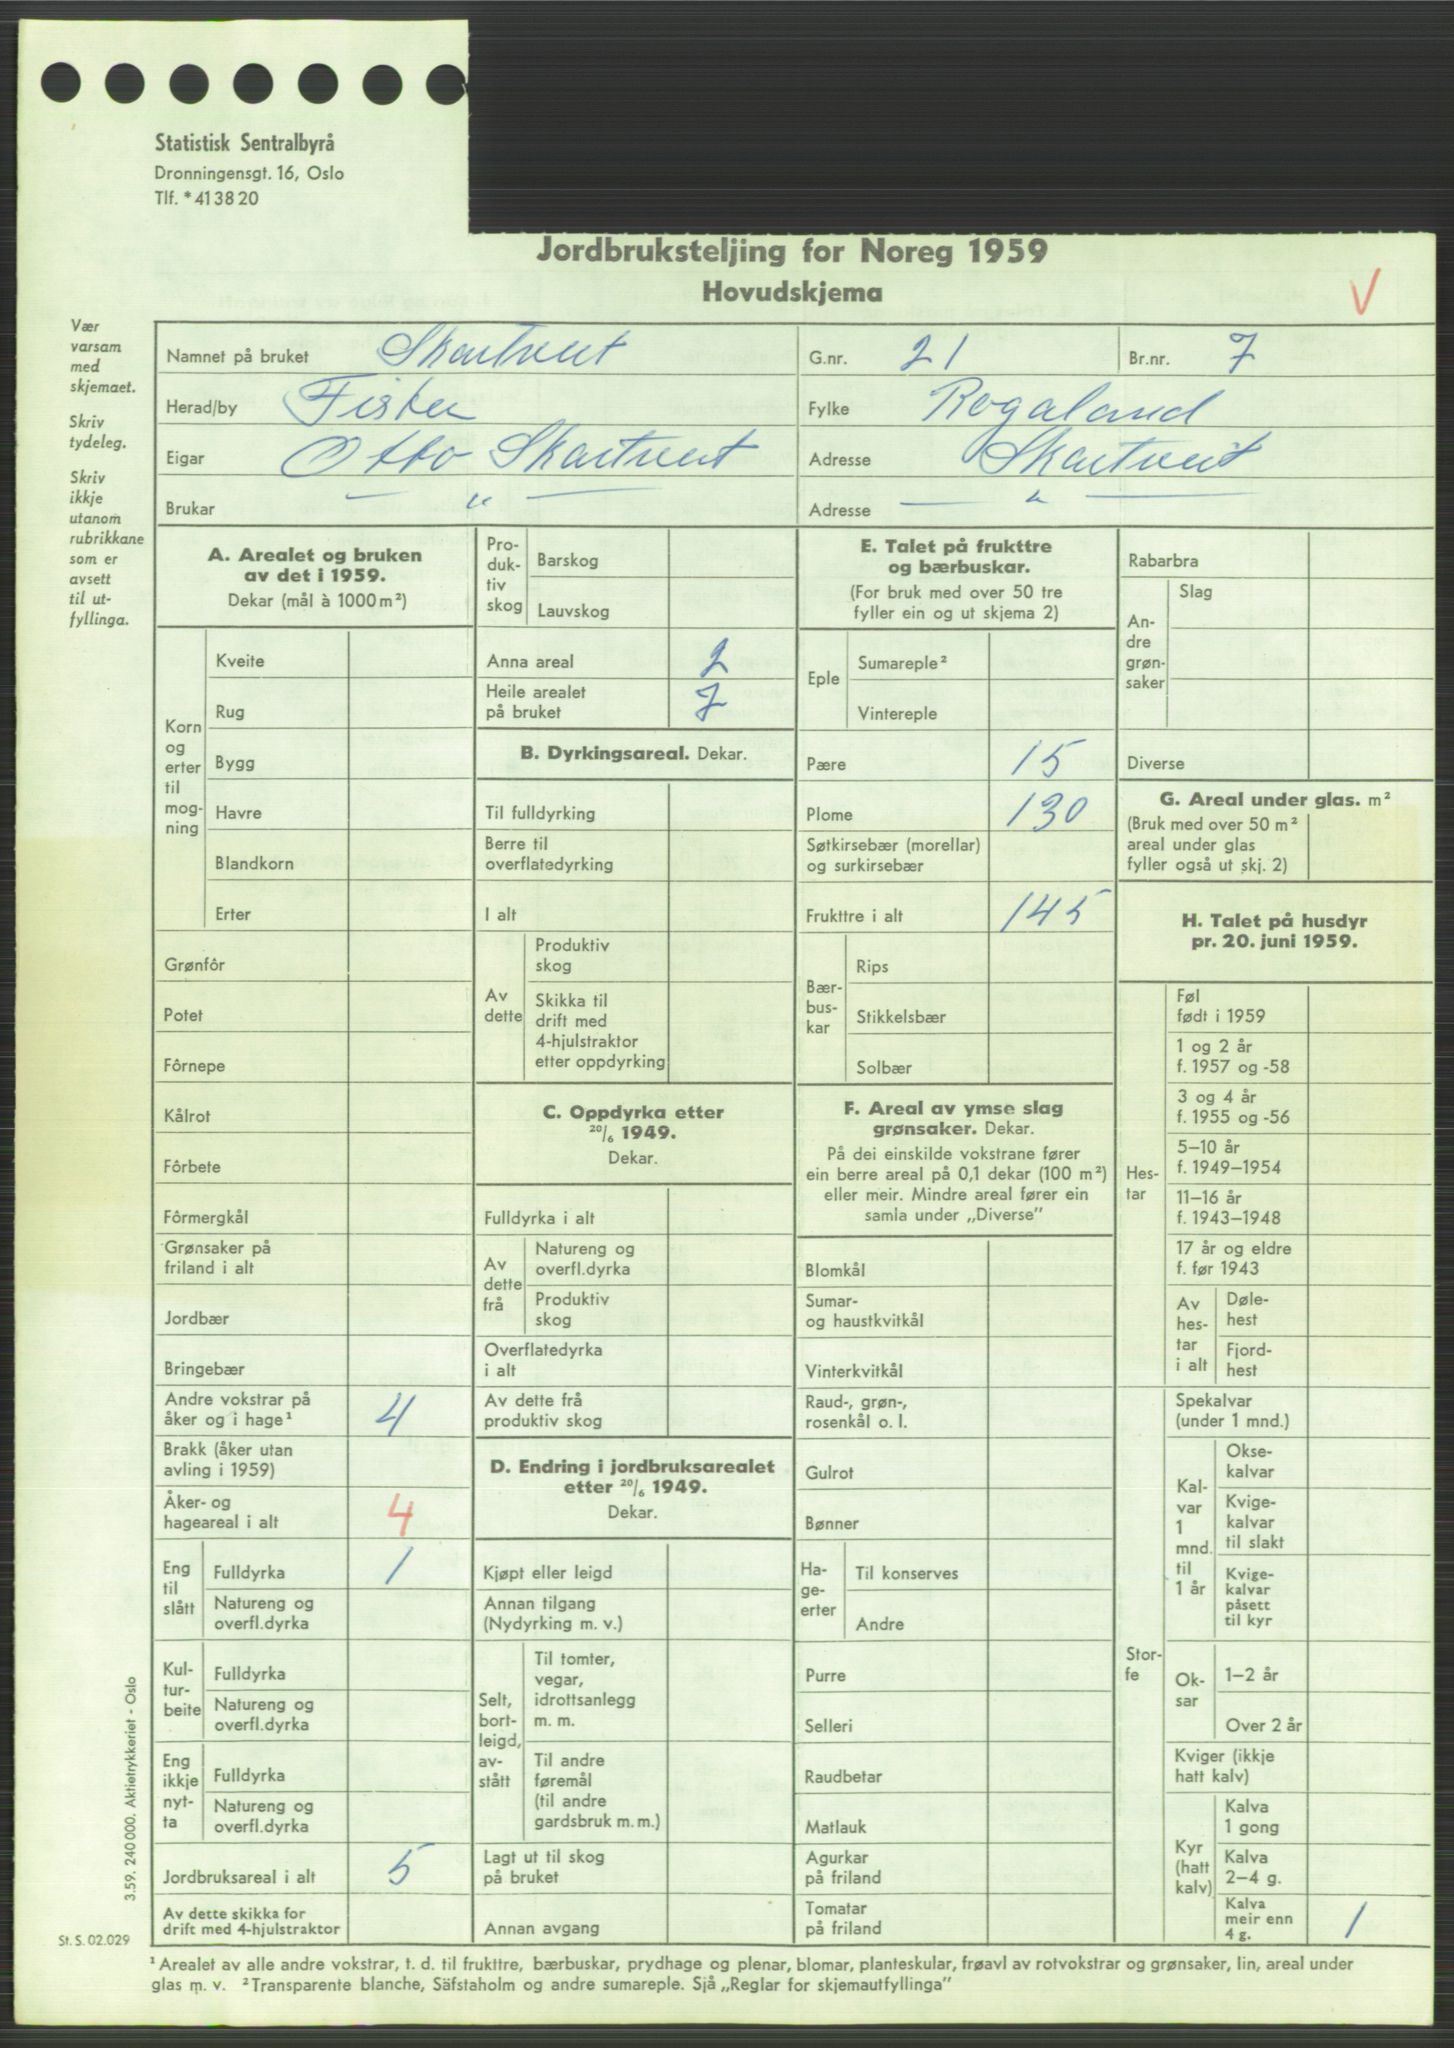 Statistisk Sentralbyrå
Dronningensgt. 16, Oslo
Tlf. * 41 38 20
Jordbruksteljing for Noreg 1959
Hovudskjema
V
Vær
varsam
med
skjemaet.
Skriv
tydeleg.
Skriv
ikkje
utanom
rubrikkane
som er
avsett
til ut-
fyllinga.
Namnet på bruket Skartveit G.nr. 21 Br.nr. 7
Herad/by Fister Fylke Rogaland
Eigar Otto Skartveit Adresse Skartveit
Brukar — " — Adresse — " —
A. Arealet og bruken
av det i 1959.
Dekar (mål à 1000 m²)
Korn
og
erter
til
mog-
ning
Kveite
Rug
Bygg
Havre
Blandkorn
Erter
Grønfôr
Potet
Fôrnepe
Kålrot
Fôrbete
Fôrmergkål
Grønsaker på
friland i alt
Jordbær
Bringebær
Andre vokstrar på
åker og i hage¹ 4
Brakk (åker utan
avling i 1959)
Åker- og
hageareal i alt 4
Eng
til
slått
Fulldyrka 1
Natureng og
overfl.dyrka
Kul-
tur-
beite
Fulldyrka
Natureng og
overfl.dyrka
Eng
ikkje
nyt-
ta
Fulldyrka
Natureng og
overfl.dyrka
Jordbruksareal i alt 5
Av dette skikka for
drift med 4-hjulstraktor
Pro-
duk-
tiv
skog
Barskog
Lauvskog
Anna areal 2
Heile arealet
på bruket 7
B. Dyrkingsareal. Dekar.
Til fulldyrking
Berre til
overflatedyrking
I alt
Av
dette
Produktiv
skog
Skikka til
drift med
4-hjulstraktor
etter oppdyrking
C. Oppdyrka etter
20/6 1949.
Dekar.
Fulldyrka i alt
Av
dette
frå
Natureng og
overfl.dyrka
Produktiv
skog
Overflatedyrka
i alt
Av dette frå
produktiv skog
D. Endring i jordbruksarealet
etter 20/6 1949.
Dekar.
Kjøpt eller leigd
Annan tilgang
(Nydyrking m. v.)
Selt,
bort-
leigd,
av-
stått
Til tomter,
vegar,
idrottsanlegg
m. m.
Til andre
føremål
(til andre
gardsbruk m. m.)
Lagt ut til skog
på bruket
Annan avgang
E. Talet på frukttre
og bærbuskar.
(For bruk med over 50 tre
fyller ein og ut skjema 2)
Eple
Sumareple²
Vintereple
Pære 15
Plome 130
Søtkirsebær (morellar)
og surkirsebær
Frukttre i alt 145
Bær-
bus-
kar
Rips
Stikkelsbær
Solbær
F. Areal av ymse slag
grønsaker. Dekar.
På dei einskilde vokstrane fører
ein berre areal på 0,1 dekar (100 m²)
eller meir. Mindre areal fører ein
samla under „Diverse”
Blomkål
Sumar-
og haustkvitkål
Vinterkvitkål
Raud-, grøn-,
rosenkål o. l.
Gulrot
Bønner
Ha-
ge-
erter
Til konserves
Andre
Purre
Selleri
Raudbetar
Matlauk
Agurkar
på friland
Tomatar
på friland
Rabarbra
An-
dre
grøn-
saker
Slag
Diverse
G. Areal under glas. m²
(Bruk med over 50 m²
areal under glas
fyller også ut skj. 2)
H. Talet på husdyr
pr. 20. juni 1959.
Hes-
tar
Føl
født i 1959
1 og 2 år
f. 1957 og -58
3 og 4 år
f. 1955 og -56
5–10 år
f. 1949–1954
11–16 år
f. 1943–1948
17 år og eldre
f. før 1943
Av
hes-
tar
i alt
Døle-
hest
Fjord-
hest
Stor-
fe
Spekalvar
(under 1 mnd.)
Kal-
var
1
mnd.
til
1 år
Okse-
kalvar
Kvige-
kalvar
til slakt
Kvige-
kalvar
påsett
til kyr
Ok-
sar
1–2 år
Over 2 år
Kviger (ikkje
hatt kalv)
Kyr
(hatt
kalv)
Kalva
1 gong
Kalva
2–4 g.
Kalva
meir enn
4 g. 1
3.59. 240 000. Aktietrykkeriet - Oslo
St. S. 02.029
¹ Arealet av alle andre vokstrar, t. d. til frukttre, bærbuskar, prydhage og plenar, blomar, planteskular, frøavl av rotvokstrar og grønsaker, lin, areal under
glas m. v. ² Transparente blanche, Säfstaholm og andre sumareple. Sjå „Reglar for skjemautfyllinga”